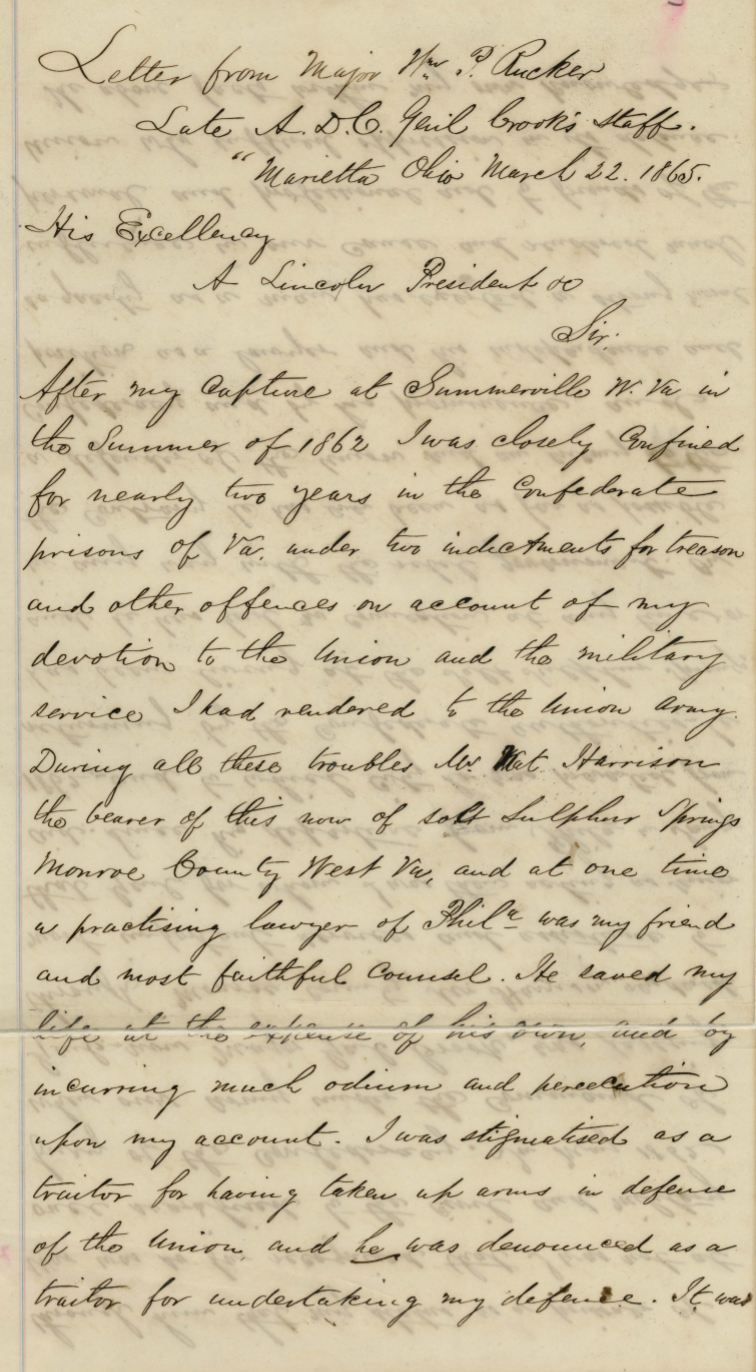 Letter from Major Wm. P. Rucker
Late A. D. C. Genl Crook's staff.
"Marietta Ohio March 22. 1865.
His Excellency
A Lincoln President &c
Sir:
After my Capture at Summerville W. Va in
the Summer of 1862 I was closely Confined
for nearly two years in the Confederate
prisons of Va. under two indictments for treason
and other offences on account of my
devotion to the Union and the military
service I had rendered to the Union Army.
During all these troubles Mr. Nat Harrison
the bearer of this now of Salt Sulphur Springs
Monroe County West Va, and at one time
a practising lawyer of Phila was my friend
and most faithful Counsel. He saved my
life at the expense of his own, and by
incurring much odium and persecution
upon my account. I was stigmatised as a
traitor for having taken up arms in defence
of the Union, and he was denounced as a
traitor for undertaking my defence. It was